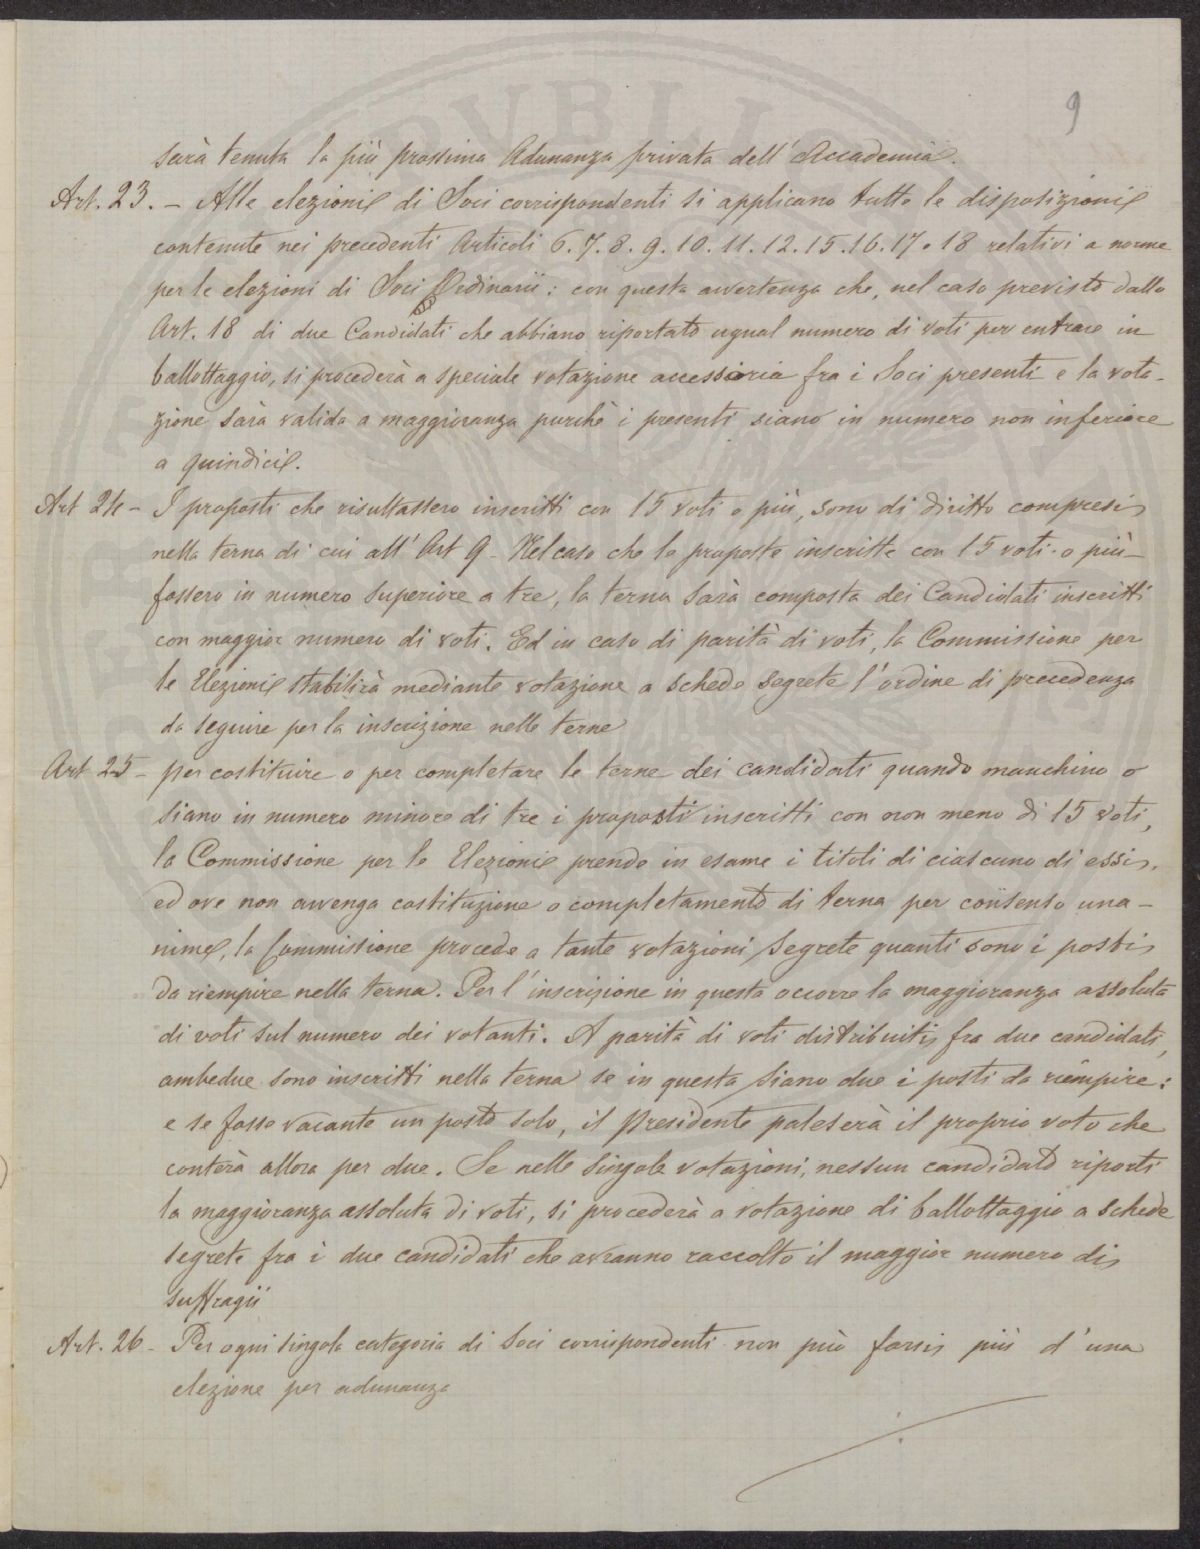 9
sarà tenuta la più prossima Adunanza privata dell'Accademia.
Art. 23. – Alle elezioni di Soci corrispondenti si applicano tutte le disposizioni
contenute nei precedenti Articoli 6. 7. 8. 9. 10. 11. 12. 15. 16. 17 e 18 relativi a norme
per le elezioni di Soci Ordinarii: con questa avvertenza che, nel caso previsto dallo
Art. 18 di due Candidati che abbiano riportato ugual numero di voti per entrare in
ballottaggio, si procederà a speciale votazione accessoria fra i Soci presenti e la vota-
zione sarà valida a maggioranza purchè i presenti siano in numero non inferiore
a quindici.
Art 24 – I proposti che risultassero inscritti con 15 voti o più, sono di diritto compresi
nella terna di cui all'Art 9 – Nel caso che le proposte inscritte con 15 voti o più
fossero in numero superiore a tre, la terna sarà composta dei Candidati inscritti
con maggior numero di voti. Ed in caso di parità di voti, la Commissione per
le Elezioni stabilirà mediante votazione a schede segrete l'ordine di precedenza
da seguire per la inscrizione nelle terne
Art 25 – per costituire o per completare le terne dei candidati quando manchino o
siano in numero minore di tre i proposti inscritti con non meno di 15 voti,
la Commissione per le Elezioni prende in esame i titoli di ciascuno di essi,
ed ove non avvenga costituzione o completamento di terna per consenso una-
nime, la Commissione procede a tante votazioni segrete quanti sono i posti
da riempire nella terna. Per l'inscrizione in questa occorre la maggioranza assoluta
di voti sul numero dei votanti. A parità di voti distribuiti fra due candidati,
ambedue sono inscritti nella terna se in questa siano due i posti da riempire:
e se fosse vacante un posto solo, il Presidente paleserà il proprio voto che
conterà allora per due. Se nelle singole votazioni, nessun candidato riporti
la maggioranza assoluta di voti, si procederà a votazione di ballottaggio a schede
segrete fra i due candidati che avranno raccolto il maggior numero di
suffragii
Art. 26 – Per ogni singola categoria di Soci corrispondenti non può farsi più d'una
elezione per adunanza